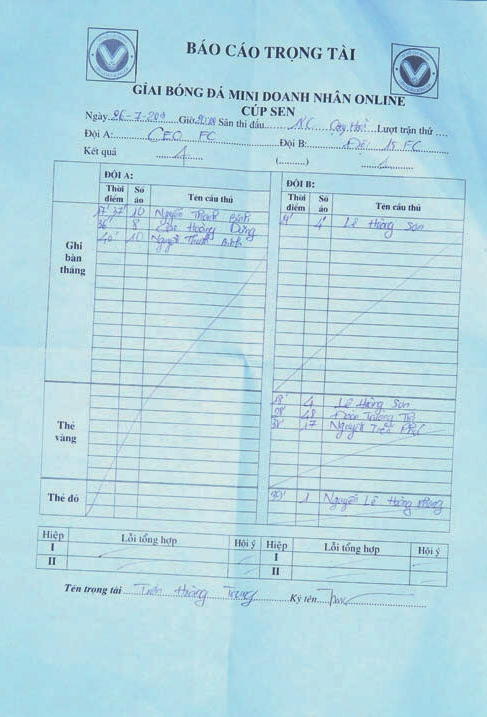 BÁO CÁO TRỌNG TÀI
GIẢI BÓNG ĐÁ MINI DOANH NHÂN ONLINE
CÚP SEN
Ngày 26-7-20 Giờ Sân thi đấu NC Lượt trận thứ
Đội A: CEO FC Đội B: Đội 15 FC
Kết quả 4 (..........) 1
ĐỘI A: ĐỘI B:
Thời điểm Số áo Tên cầu thủ Thời điểm Số áo Tên cầu thủ
Ghi bàn thắng
17' 27' 10 Nguyễn Thanh Bình 4 Lê Hoàng Sơn
36' 8 Hoàng Dũng
40' 10 Nguyễn Thanh Bình
Thẻ vàng
18' 4 Lê Hoàng Sơn
18 Đoàn Trương
38' 17 Nguyễn
Thẻ đỏ
1 Nguyễn Lê Hoàng
Hiệp Lỗi tổng hợp Hội ý Hiệp Lỗi tổng hợp Hội ý
I I
II II
Tên trọng tài Trần Hoàng Trung Ký tên